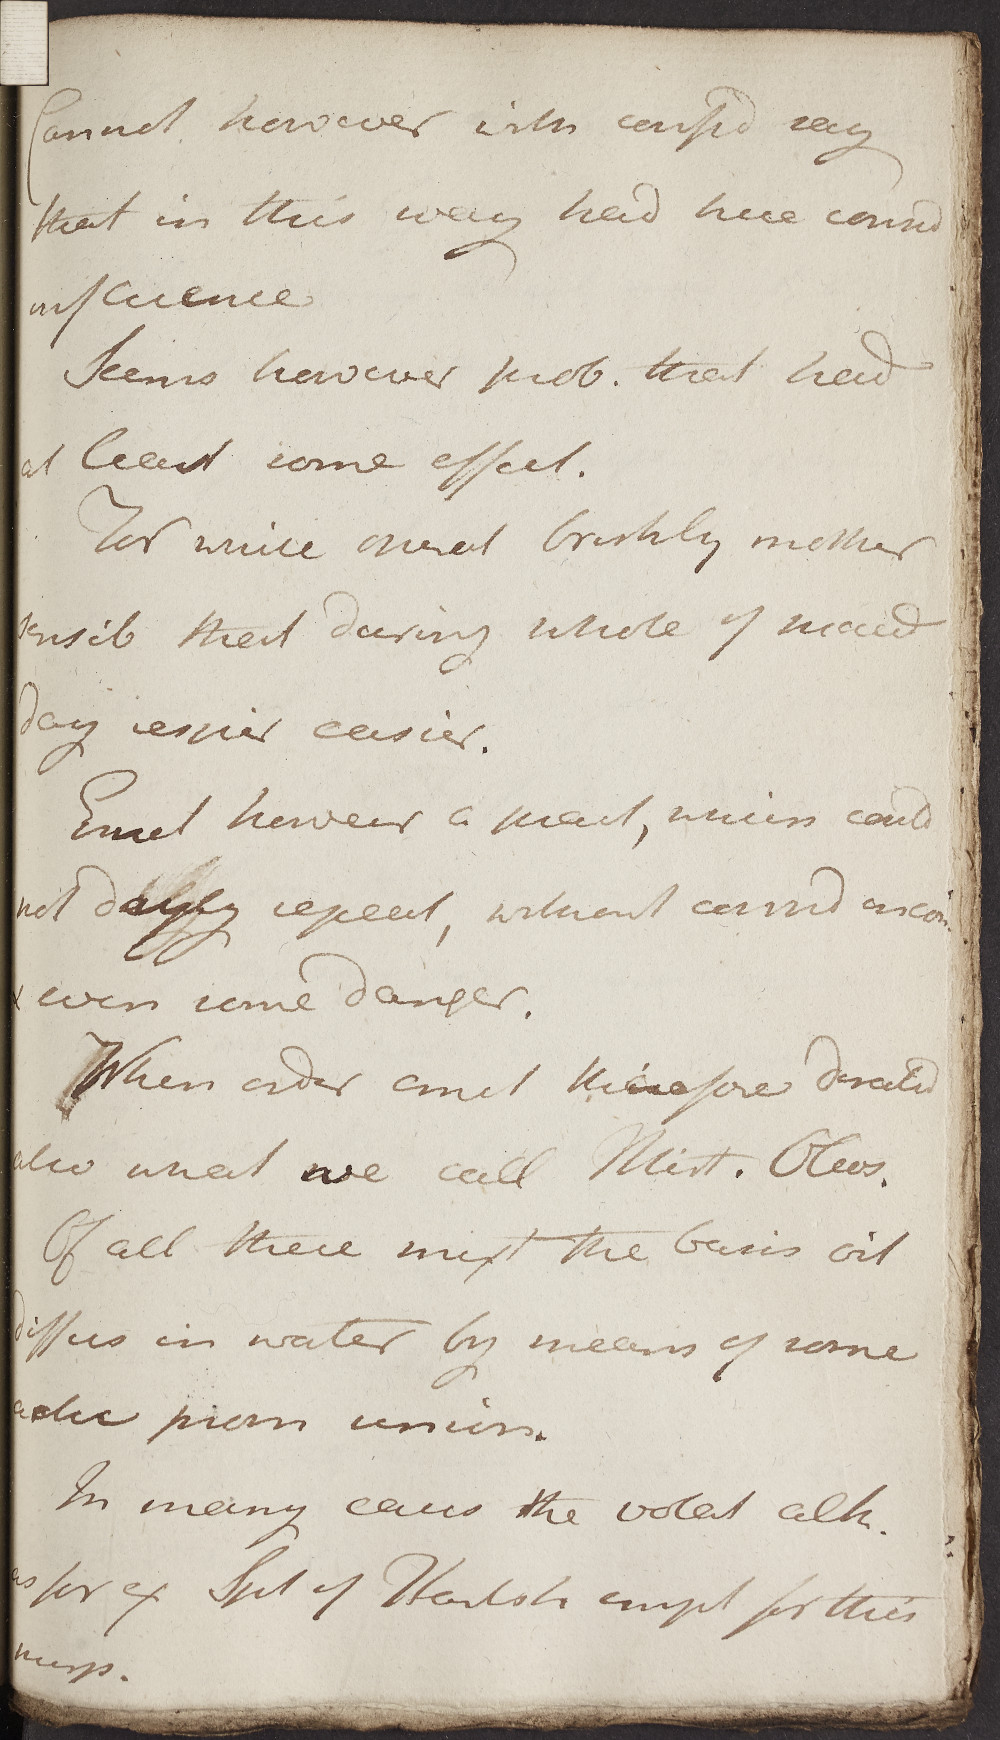 Cannot however with confid say
that in this way had here consid
influence
Seems however prob. that had
at least some effect.
For while operat briskly mother
sensib that during whole of succeed
day respir easier.
Emet however a pract, which could
not daily repeat, without consid incon.
& even some danger.
When order emet therefore directed
also what we call Mist. Oleos.
Of all these mixt the basis oil
diffus in water by means of some
prom union.
In many cases the volat alk.
as for ex Spt of Hartsh empl for this
purp.